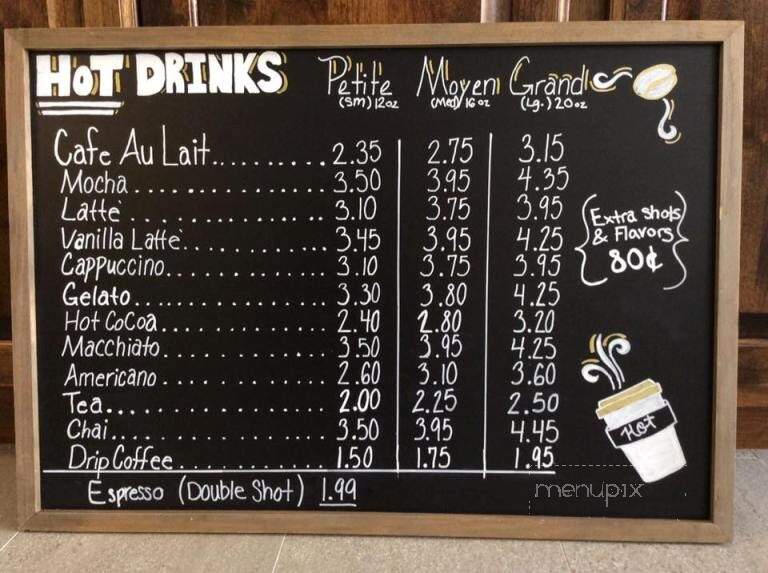 HOT DRINKS Petite Moyen Grande
(Sm) 12oz (Med) 16oz (Lg.) 20oz
Cafe Au Lait.......... 2.35 2.75 3.15
Mocha .............. 3.50 3.95 4.35
Latte .............. 3.10 3.75 3.95
Vanilla Latte........... 3.45 3.95 4.25
Cappuccino............ 3.10 3.75 3.95
Gelato............... 3.30 3.80 4.25
Hot CoCoa............. 2.40 2.80 3.20
Macchiato............. 3.50 3.95 4.25
Americano ............. 2.60 3.10 3.60
Tea................. 2.00 2.25 2.50
Chai................ 3.50 3.95 4.45
Drip Coffee............ 1.50 1.75 1.95
Espresso (Double Shot) 1.99
Extra Shots
& Flavors
80¢
Hot
menupix